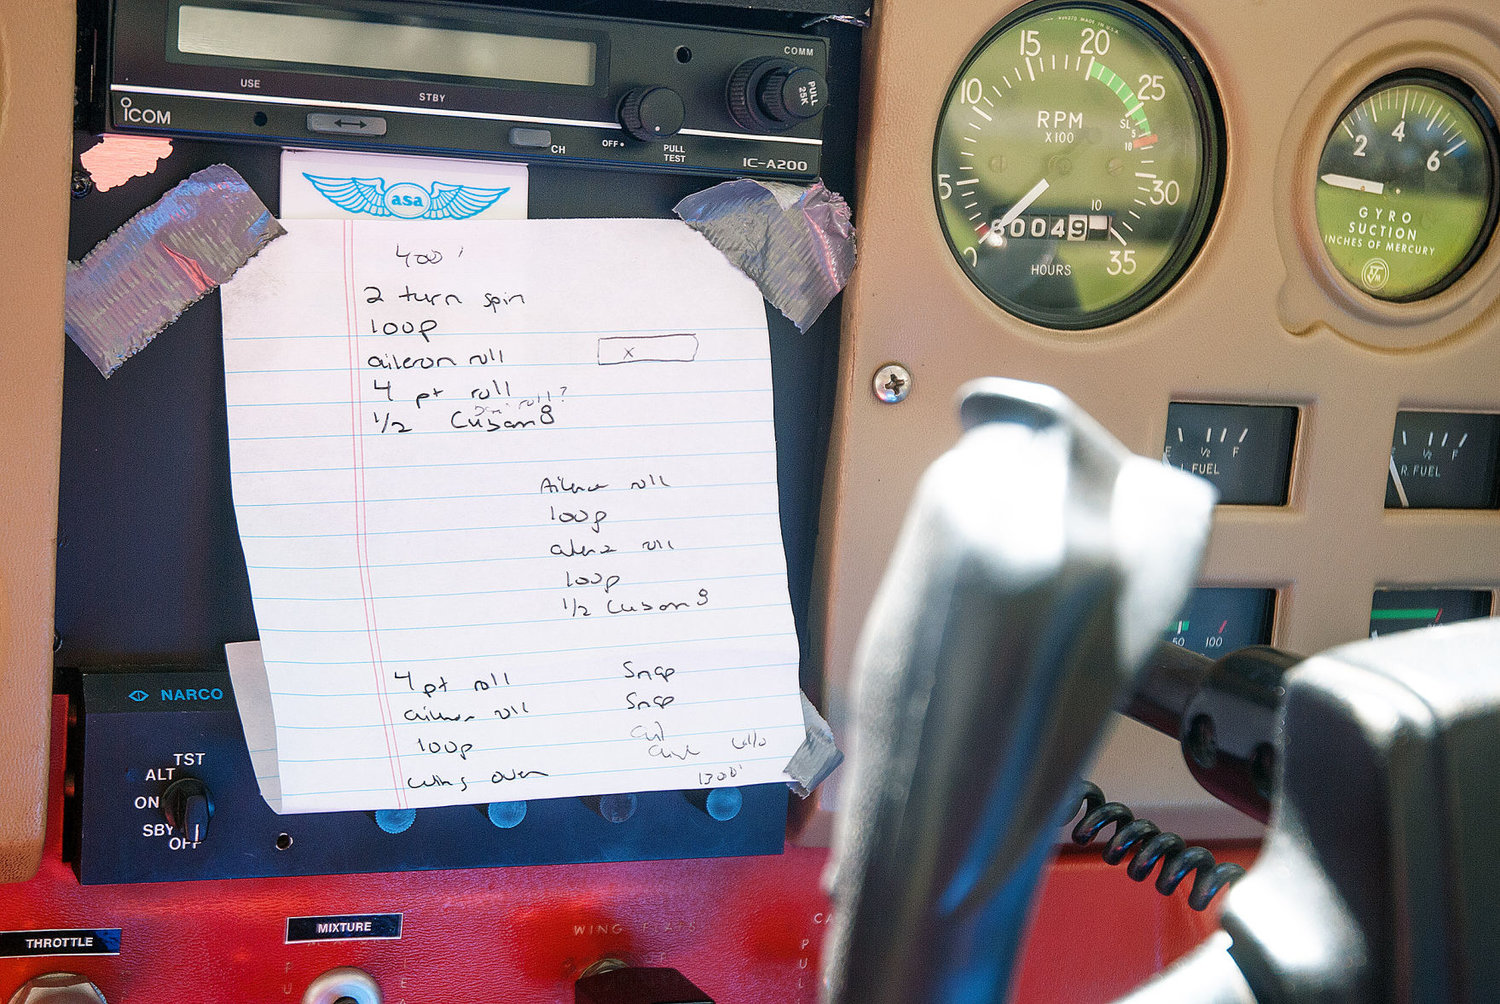 USE
STBY
COMM
PULL
25K
iCOM
CH
OFF
PULL
TEST
IC-A200
asa
400'
2 turn spin
loop
aileron roll
x
4 pt roll
roll?
1/2 Cuban 8
Aileron roll
loop
roll
loop
1/2 Cuban 8
4 pt roll
Snap
aileron roll
Snap
loop
wing over
1300'
NARCO
TST
ALT
ON
SBY
OFF
THROTTLE
MIXTURE
WING FLAPS
MADE IN U.S.A.
0
5
10
15
20
25
30
35
RPM
X100
SL
5
10
10
0049
HOURS
2
4
6
GYRO
SUCTION
INCHES OF MERCURY
E
1/2
F
L FUEL
1/2
F
R FUEL
50
100